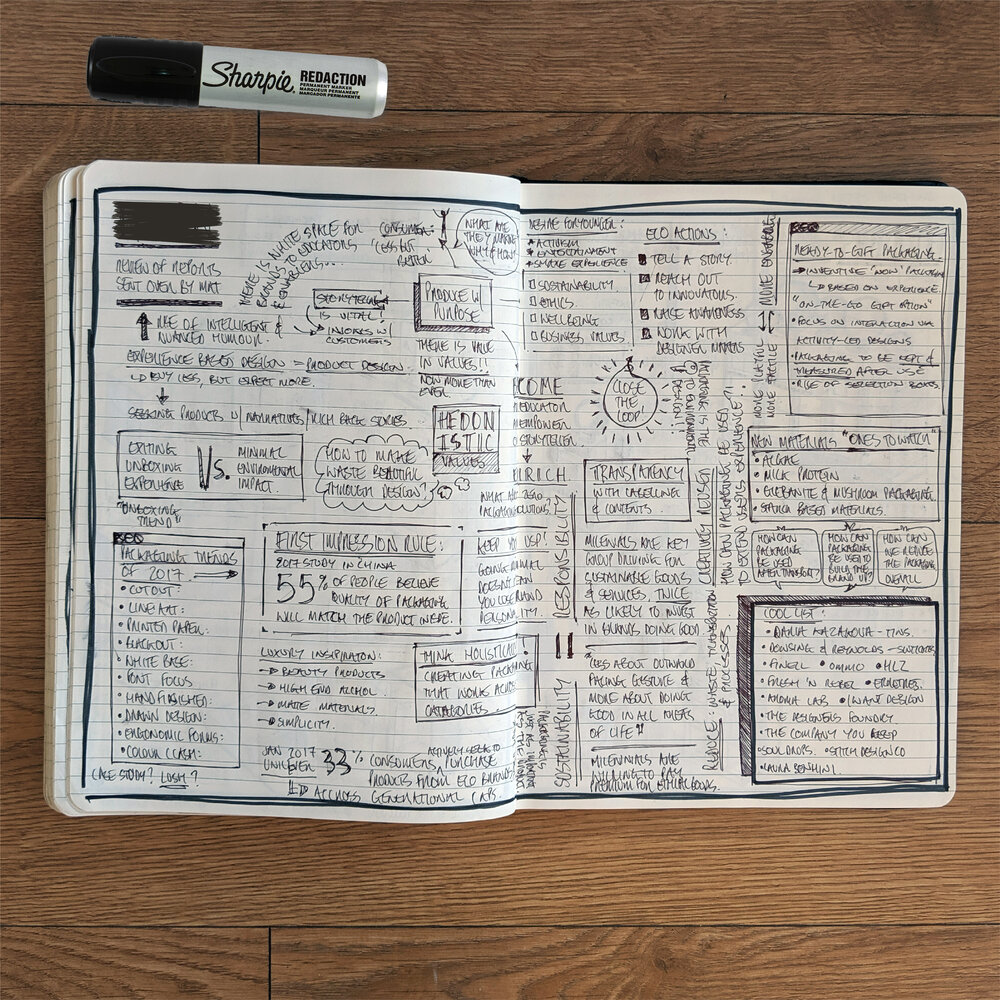 Sharpie REDACTION
PERMANENT MARKER
MARQUEUR PERMANENT
MARCADOR PERMANENTE
REVIEW OF REPORTS
SENT OVER BY MAT
THERE IS WHITE SPACE FOR
BRANDS TO BE EDUCATORS
& ENABLERS...
CONSUMER:
"LESS BUT
BETTER
WHAT ARE
THEY MAKING
WHY & HOW?
RISE OF INTELLIGENT &
NUANCED HUMOUR.
STORYTELLING
IS VITAL!
INVOLVES W/
CUSTOMERS
PRODUCE W/
PURPOSE
EXPERIENCE BASED DESIGN = PRODUCT DESIGN.
BUY LESS, BUT EXPECT MORE.
THERE IS VALUE
IN VALUES!!
NOW MORE THAN
EVER.
SEEKING PRODUCTS W/ NARRATIVES/RICH BACK STORIES
HEDON
ISTIC
VALUES
EXITING
UNBOXING
EXPERIENCE
VS.
MINIMAL
ENVIROMENTAL
IMPACT.
"UNBOXING
TREND"
HOW TO MAKE
WASTE BEAUTIFUL
THROUGH DESIGN?
PACKAGING TRENDS
OF 2017
• CUT OUT:
• LINE ART:
• PRINTED PAPER:
• BLACKOUT:
• WHITE BASE:
• FONT FOCUS
• HANDFINISHED:
• DRAWN DESIGN:
• ERGONOMIC FORMS:
• COLOUR CLASH:
CASE STUDY? LUSH?
FIRST IMPRESSION RULE:
2017 STUDY IN CHINA
55% OF PEOPLE BELIEVE
QUALITY OF PACKAGING
WILL MATCH THE PRODUCT INSIDE.
LUXURY INSPIRATION:
BEAUTY PRODUCTS
HIGH END ALCHOL.
MATTE MATERIALS.
SIMPLICITY.
JAN 2017
UNILEVER 33% CONSUMERS
ACTIVELY SEEK TO
PURCHASE
PRODUCTS FROM ECO BRANDS
ACCROSS GENERATIONAL GAPS.
KEEP YOUR USP!
GOING MINIMAL
DOESN'T MEAN
YOU LOSE BRAND
PERSONALITY.
THINK HOLISTICALLY
CREATING PACKAGING
THAT WORKS ACROSS
CATAGORIES.
DESIRE FOR YOUNGER:
ACTIVISM
ENTERTAINMENT
SHARED EXPERIENCE
SUSTAINABILITY
ETHICS
WELLBEING
BUSINESS VALUES
ECO ACTIONS:
TELL A STORY.
REACH OUT
TO INNOVATORS.
RAISE AWARENESS
WORK WITH
DESIGNER MAKERS
EDUCATOR
EMPOWER
STORYTELLER.
CLOSE
THE
LOOP!
RESPONSIBILITY
=
SUSTAINABILITY
TRANSPARENCY
WITH LABELLING
& CONTENTS.
MILENIALS ARE KEY
GROUP DRIVING FOR
SUSTAINABLE GOODS
& SERVICES. TWICE
AS LIKELY TO INVEST
IN BRANDS DOING GOOD.
"LESS ABOUT OUTWARD
FACING GESTURE &
MORE ABOUT DOING
GOOD IN ALL AREAS
OF LIFE"
MILENNIALS ARE
WILLING TO PAY
PREMIUM FOR ETHICAL GOODS.
REDUCE: WASTE, TRANSPORTATION
& PROCESSES
HOW CAN PACKAGING BE USED
TO EXTEND USERS EXPERIENCE?!
MORE PLAYFUL
MORE TACTILE
MORE ENGAGING
READY-TO-GIFT PACKAGING
INVENTIVE 'WOW' PACKAGING
BASED ON EXPERIENCE.
"ON-THE-GO GIFT OPTION"
• FOCUS ON INTERACTION VIA
ACTIVITY-LED DESIGNS
• PACKAGING TO BE KEPT &
TREASURED AFTER USE
• RISE OF SELECTION BOXES
NEW MATERIALS "ONES TO WATCH"
• ALGAE
• MILK PROTEIN
• & MUSHROOM PACKAGING.
• STARCH BASED MATERIALS.
HOW CAN
PACKAGING
BE USED
AFTER TRANSPORT?
HOW CAN
PACKAGING
BE USED TO
BUILD THE
BRAND UP?
HOW CAN
WE REDUCE
PACKAGING
OVERALL
COOL LIST:
• DARIA KAZAKOVA - TINS.
• DOWSING & REYNOLDS - SWITCHES
• FINELL • OMMO • HLZ
• FRESH 'N REBEL
• AROMA LAB • I WANT DESIGN
• THE DESIGNERS FOUNDRY
• THE COMPANY YOU KEEP
• SOULDROPS. • STITCH DESIGN CO
• LAURA